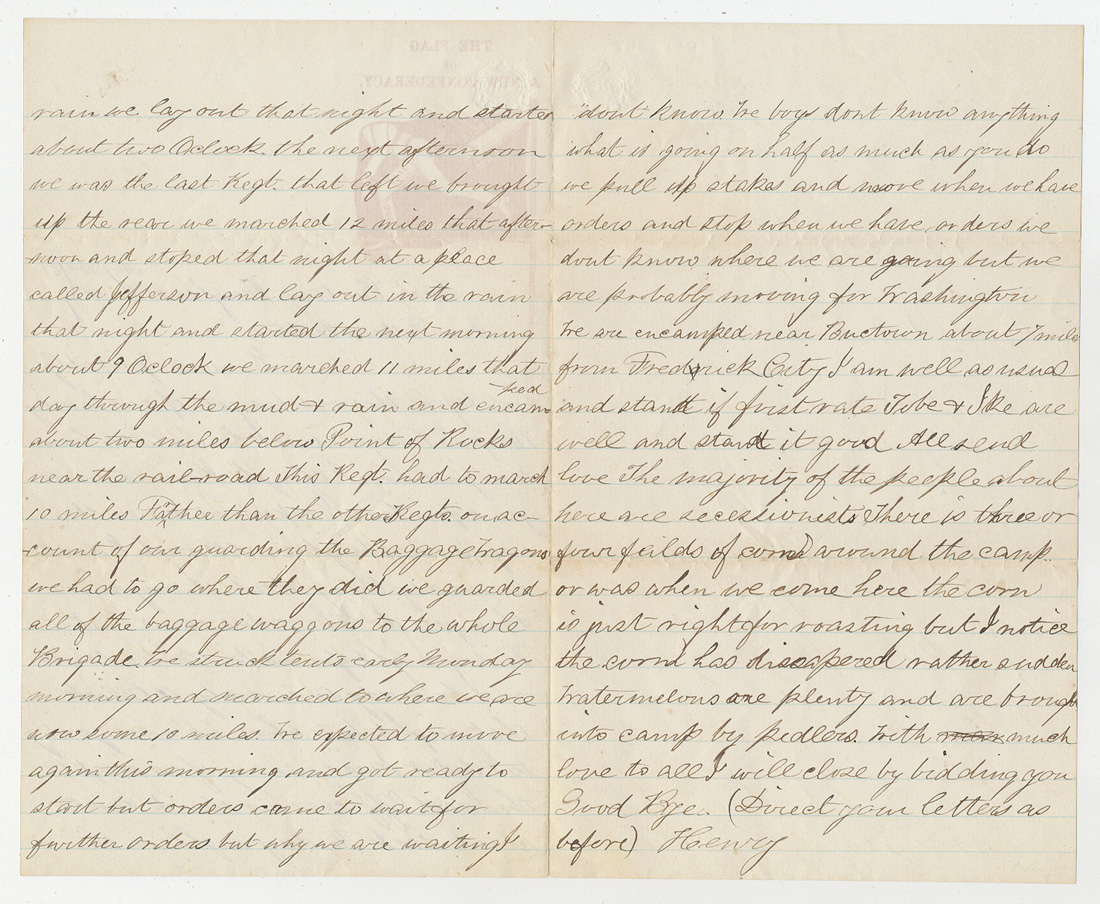 THE FLAG
OF
NEW CONFEDERACY
rain we lay out that night and started
about two Oclock. the next afternoon
we was the last Regt. that left we brought
up the rear we marched 12 miles that after-
noon and stoped that night at a place
called Jefferson and lay out in the rain
that night and started the next morning
about 9 Oclock we marched 11 miles that
day through the mud & rain and encamped
about two miles below Point of Rocks
near the rail-road This Regt. had to march
10 miles Farther than the other Regts. on ac-
count of our guarding the Baggage Wagons
we had to go where they did we guarded
all of the baggage waggons to the whole
Brigade. We struck tents early Monday
morning and marched to where we are
now some 10 miles. We expected to move
again this morning and got ready to
start but orders came to wait for
further orders but why we are waiting I
dont know We boys dont know anything
what is going on half as much as you do
we pull up stakes and move when we have
orders and stop when we have orders we
dont know where we are going but we
are probably moving for Washington
We are encamped near Buctown about 7 miles
from Fredrick City I am well as usual
and stand it first rate Tobe & Ike are
well and stand it good All send
love The majority of the people about
here are secessionists There is three or
four feilds of corn around the camp
or was when we come here the corn
is just right for roasting but I notice
the corn has disapered rather sudden
Watermelons are plenty and are brought
into camp by pedlers. With much
love to all I will close by bidding you
Good Bye. (Direct your letters as
before) Henry